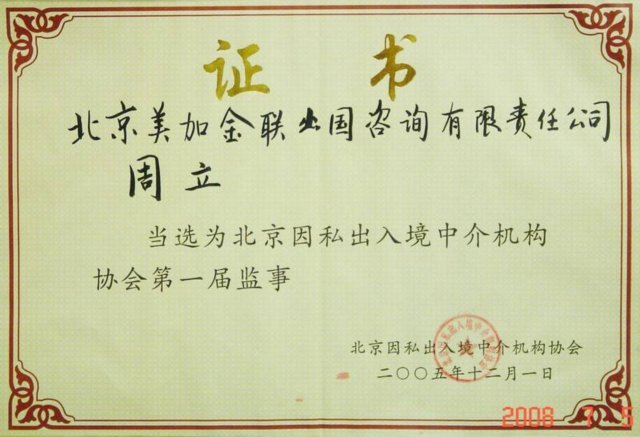 证书
北京美加金联出国咨询有限责任公司
周立
当选为北京因私出入境中介机构
协会第一届监事
北京因私出入境中介机构协会
二〇〇五年十二月一日
2008 7 5